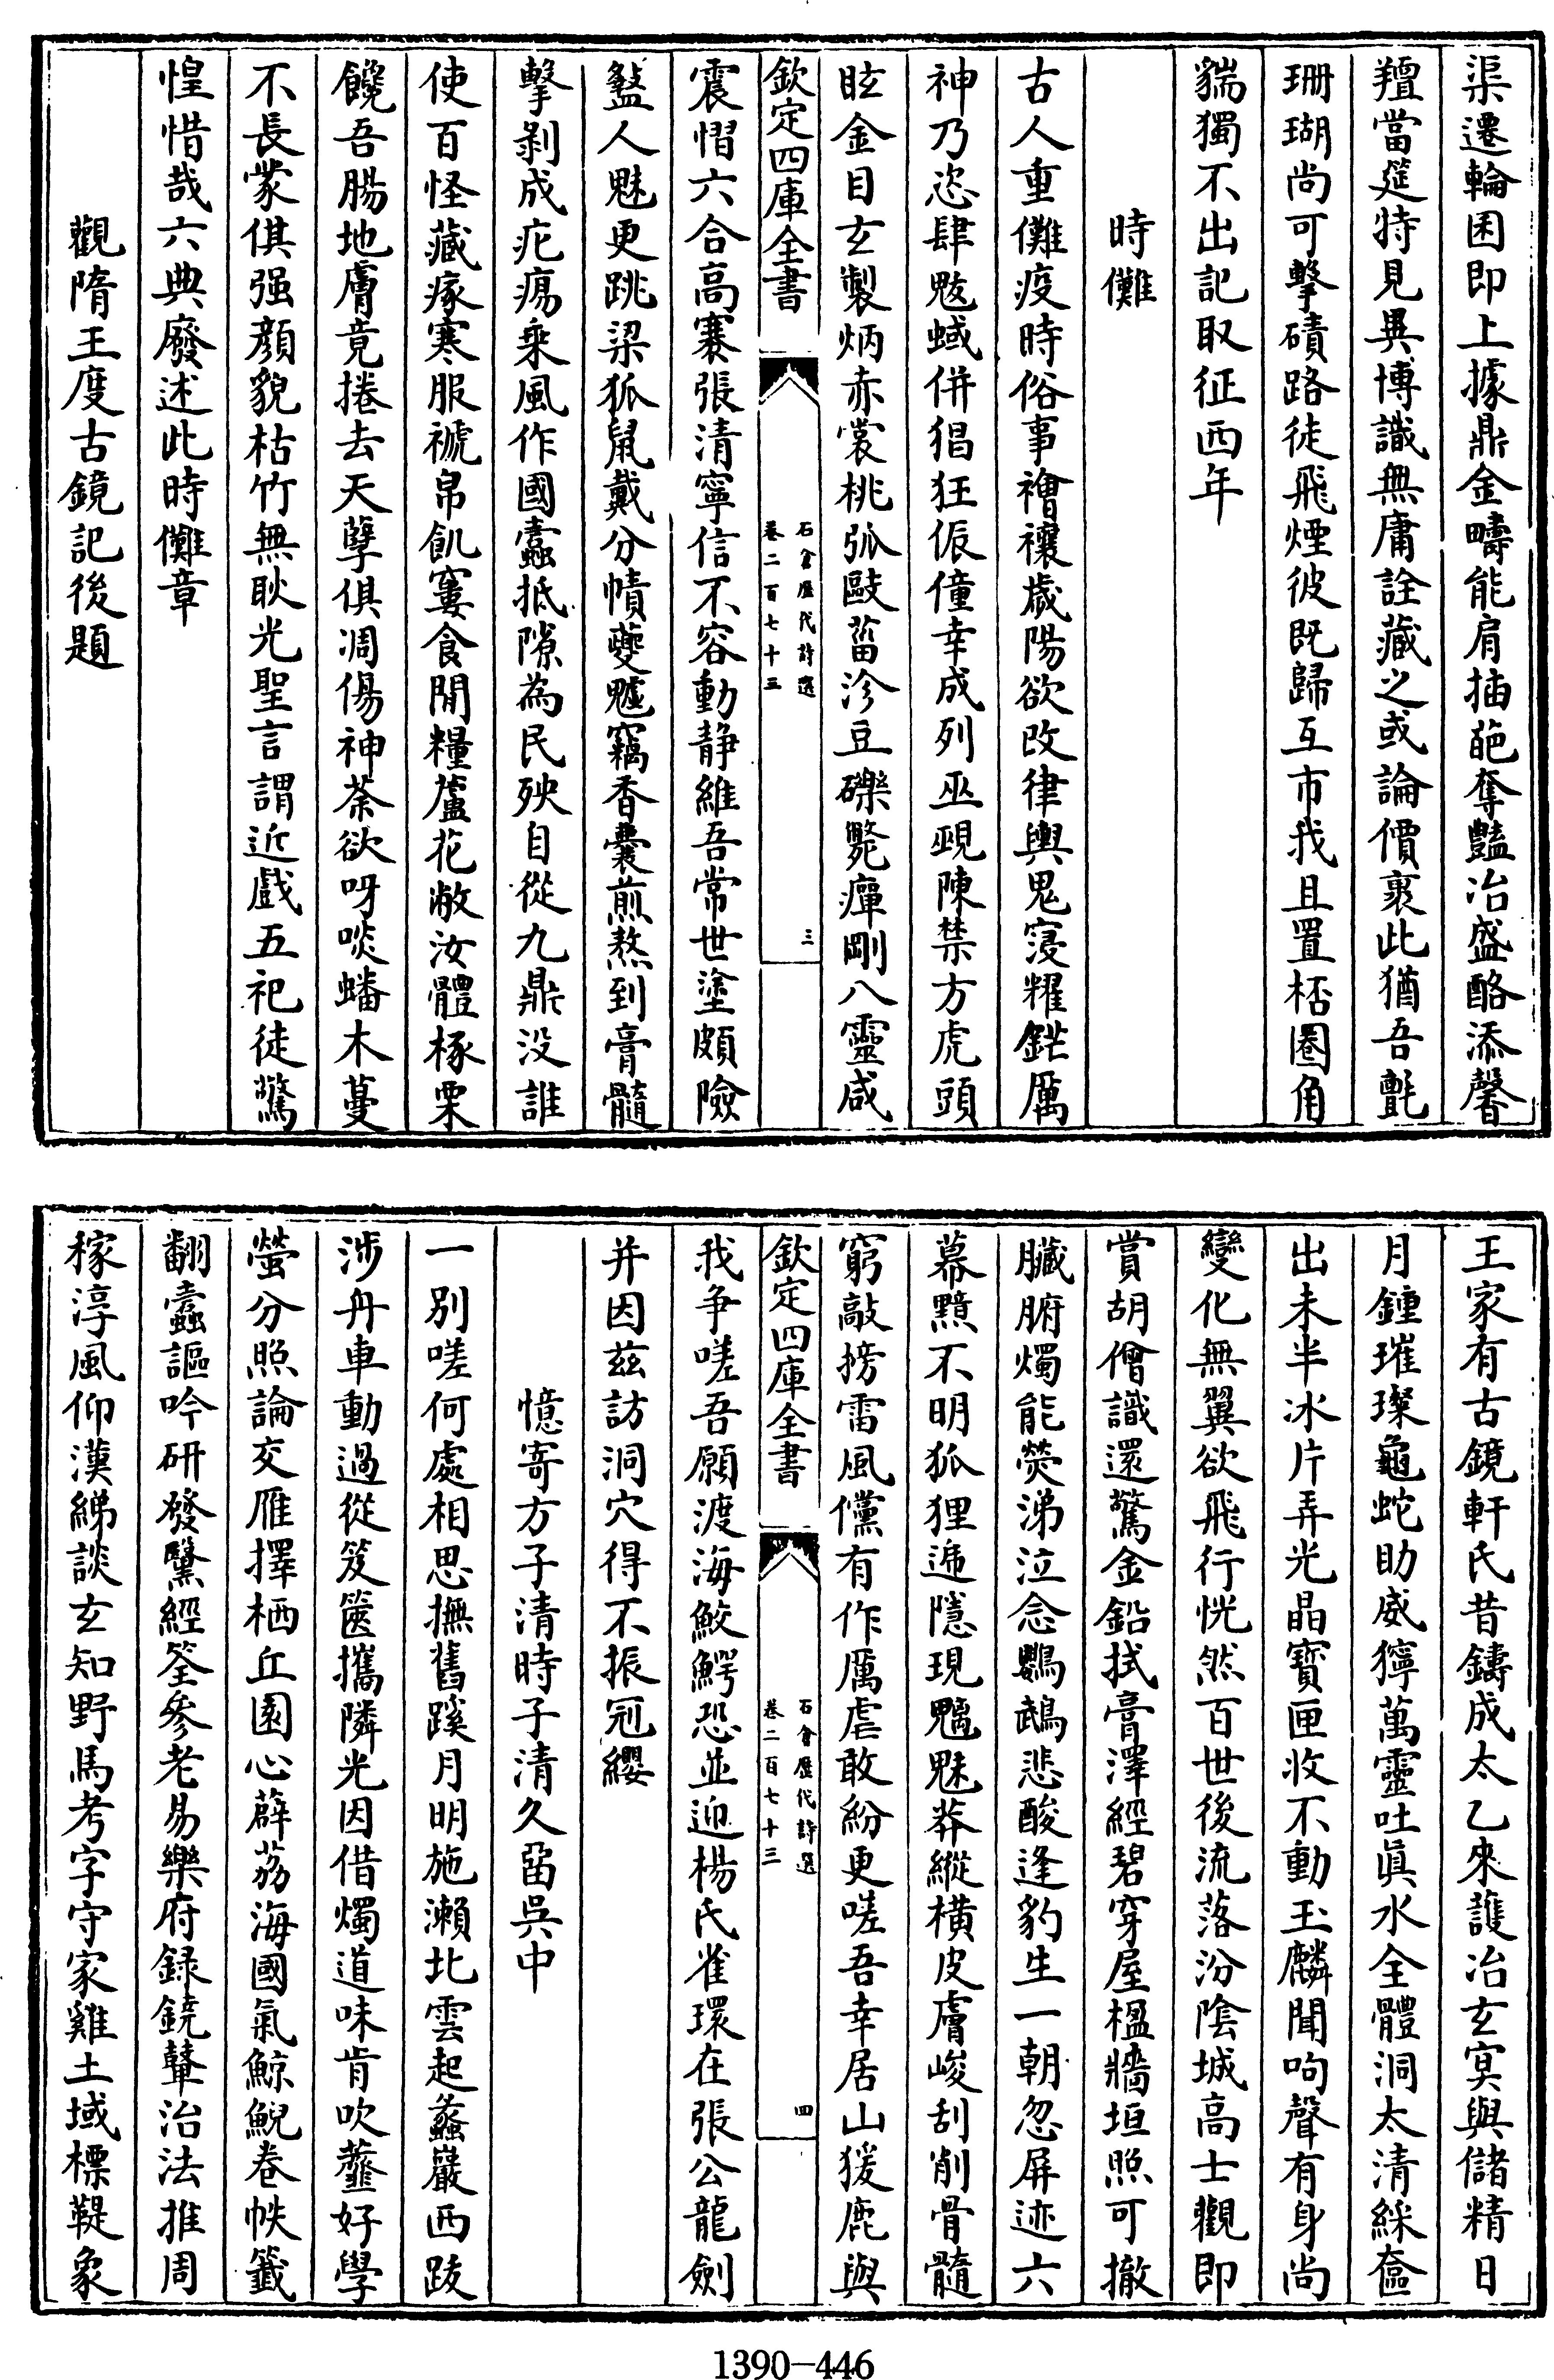 渠遷輪囷即上據鼎金疇能肩插葩奪豔冶盛酪添馨
羶當筵特見異博識無庸詮藏之或論價裹此猶吾氈
珊瑚尚可擊磧路徒飛煙彼既歸互市我且置桮圈角
貒獨不出記取征西年
時儺
古人重儺疫時俗事禬禳歲陽欲改律輿鬼寖耀鋩厲
神乃恣肆魃蜮併猖狂侲僮幸成列巫覡陳禁方虎頭
眩金目玄製炳赤裳桃弧敺菑沴豆礫斃癉剛八靈咸
欽定四庫全書
石倉歷代詩選
卷二百七十三
三
震慴六合高褰張清寧信不容動靜維吾常世塗頗險
盭人魅更跳梁狐鼠戴分幘夔魖竊香囊煎熬到膏髓
擊剝成疕瘍乗風作國蠹抵隙為民殃自從九鼎没誰
使百怪藏瘃寒服褫帛飢窶食閒糧蘆花敝汝體椓栗
饞吾腸地膚竟捲去天孽俱凋傷神荼欲呀啖蟠木蔓
不長蒙倛强顔貌枯竹無耿光聖言謂近戲五祀徒驚
惶惜哉六典廢述此時儺章
觀隋王度古鏡記後題
王家有古鏡軒氏昔鑄成太乙來護冶玄冥與儲精日
月鍾璀璨龜蛇助威獰萬靈吐眞水全體洞太清綵奩
出未半冰片弄光晶寳匣收不動玉麟聞呴聲有身尚
變化無翼欲飛行恍然百世後流落汾陰城高士觀即
賞胡僧識還驚金鉛拭膏澤經碧穿屋楹牆垣照可撤
臟腑燭能熒涕泣念鸚鵡悲酸逢豹生一朝忽屏迹六
幕黯不明狐狸遁隱現魑魅莽縱横皮膚峻刮削骨髓
窮敲搒雷風儻有作厲虐敢紛更嗟吾幸居山猨鹿與
欽定四庫全書
石倉歷代詩選
卷二百七十三
四
我争嗟吾願渡海鮫鰐恐並迎楊氏雀環在張公龍劍
并因茲訪洞穴得不振冠纓
憶寄方子清時子清久畱吳中
一别嗟何處相思撫舊蹊月明施瀨北雲起蠡巖西跋
涉舟車動過從笈篋攜隣光因借燭道味肯吹虀好學
螢分照論交雁擇栖丘園心薜荔海國氣鯨鯢卷帙籤
翻蠹謳吟研發黳經筌參老易樂府録鐃鼙治法推周
稼淳風仰漢綈談玄知野馬考字守家雞土域標鞮象
1390—446